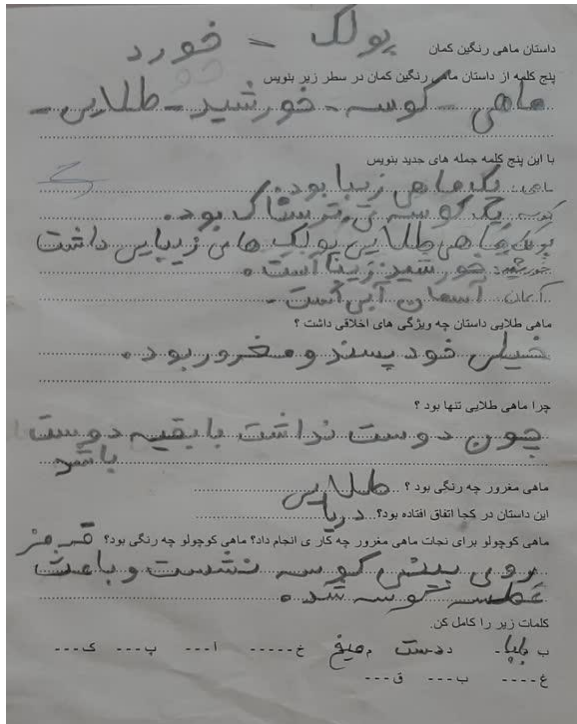 پولک - خورد
داستان ماهی رنگین کمان
پنج کلمه از داستان ماهی رنگین کمان در سطر زیر بنویس
ماهی - کوسه - خورشید - طلایی -
با این پنج کلمه جمله های جدید بنویس
ماهی: یک ماهی زیبا بود.
کوسه: یک کوسه ی ترسناک بود.
پولک: ماهی طلایی پولک های زیبایی داشت
خورشید: خورشید زیبا است.
آسمان: آسمان آبی است.
ماهی طلایی داستان چه ویژگی های اخلاقی داشت ؟
خیلی خود پسند و مغرور بود.
چرا ماهی طلایی تنها بود ؟
چون دوست نداشت با بقیه دوست
باشد
ماهی مغرور چه رنگی بود ؟ طلایی
این داستان در کجا اتفاق افتاده بود؟ دریا
ماهی کوچولو برای نجات ماهی مغرور چه کار ی انجام داد؟ ماهی کوچولو چه رنگی بود؟ قرمز
روی بینی کوسه نشست و باعث
عطسه کوسه شد.
کلمات زیر را کامل کن.
ب د میخ خ ا پ ک
غ ب ق